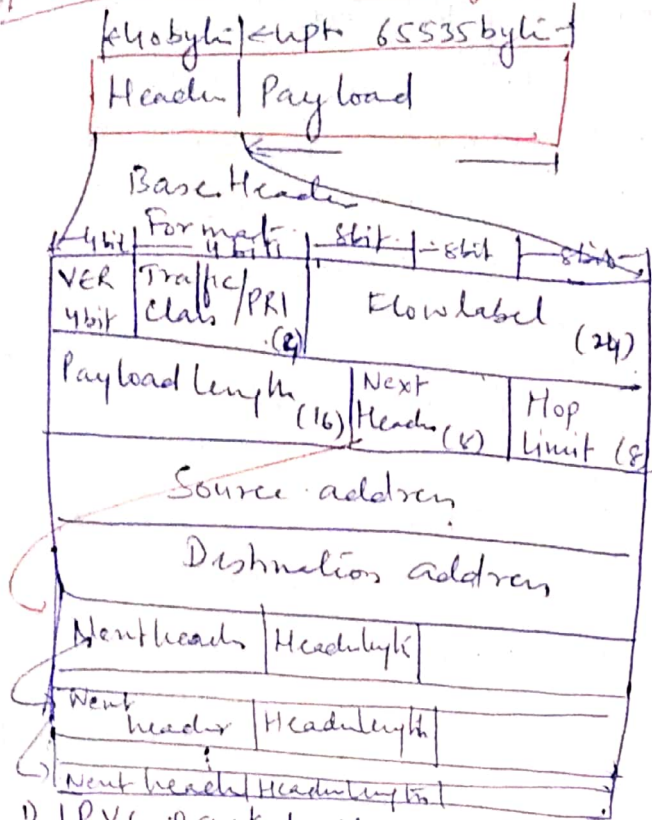 40byte upto 65535byte
Header Payload
Base Header
Format
4bit 4 bits 8bit 8bit 8bit
VER Traffic/
4bit Class/PRI Flow label
(24)
Payload length Next Hop
(16) Header (8) Limit (8)
Source address
Destination address
Next header Header length
Next
header Header length
Next header Header length
IPV6 packet